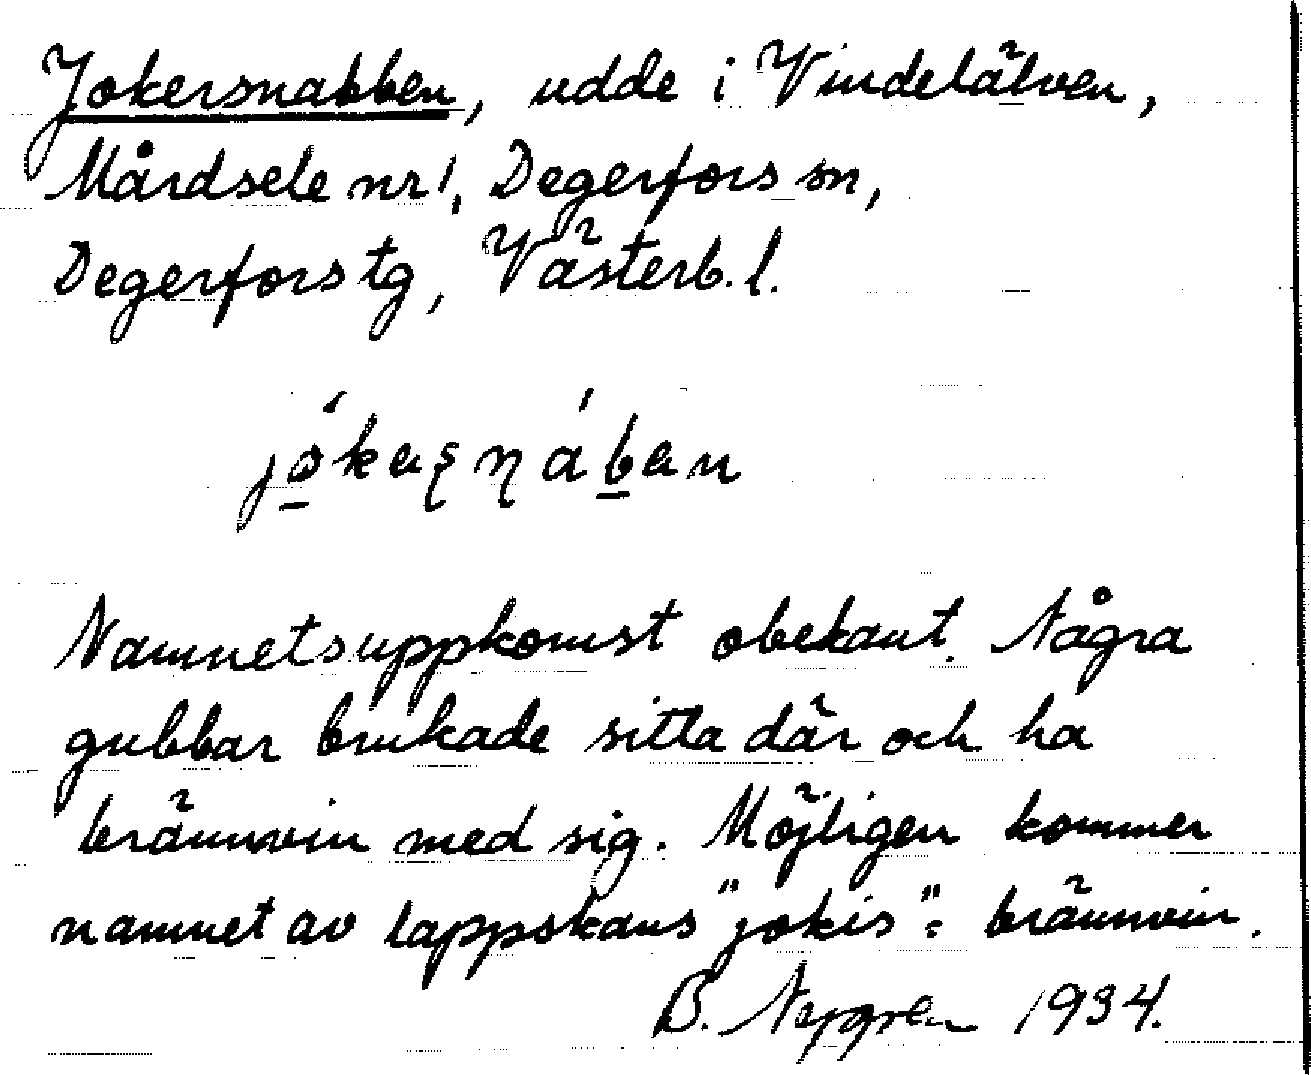 Jokersnabben, udde i Vindelälven,
Mårdsele nr 1, Degerfors sn,
Degerfors tg, Västerb. l.
Namnets uppkomst obekant. Några
gubbar brukade sitta där och ha
brännvin med sig. Möjligen kommer
namnet av lappskans "jokis" = brännvin.
B. 1934.